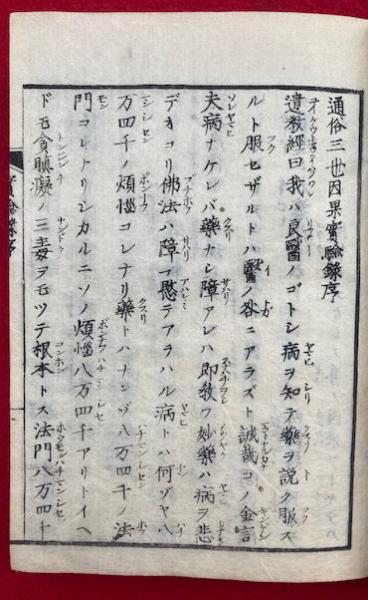 通俗三世因果實驗録序
遺教經曰我ハ良醫ノゴトシ病ヲ知テ藥ヲ說ク服ス
ルト服セザルトハ醫ノ咎ニアラズト誠哉コノ金言
夫病ナケレバ藥ナシ障アレハ即教ワ妙藥ハ病ヲ悲
デオコリ佛法ハ障ヲ慰テアラハル病トハ何ゾヤ八
万四千ノ煩惱コレナリ藥トハナンゾ八万四千ノ法
門コレナリシカルニソノ煩惱八万四千アリトイヘ
ドモ貪瞋癡ノ三毒ヲモツテ根本トス法門八万四千